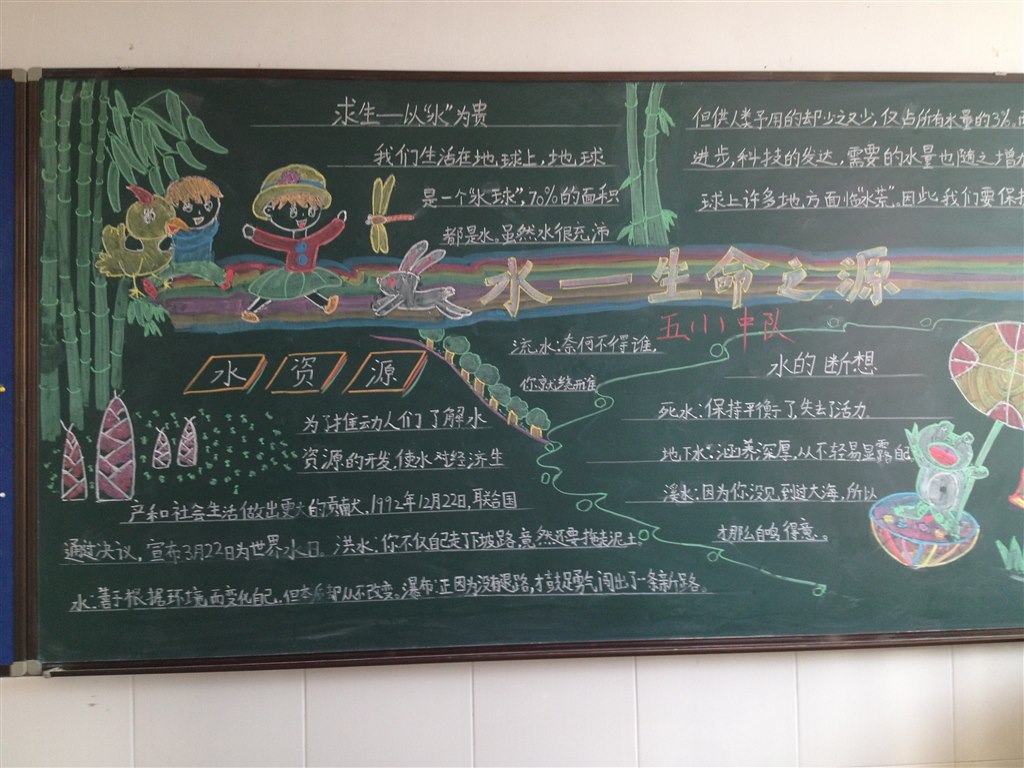 求生——从“水”为贵
我们生活在地球上,地球
是一个“水球”,70%的面积
都是水。虽然水很充沛
但供人类予用的却少之又少,仅占所有水量的3%。而
进步,科技的发达,需要的水量也随之增大
球上许多地方面临“水荒”。因此,我们要保护
水——生命之源
五(1)中队
水资源
为了推动人们了解水
资源的开发,使水对经济生
产和社会生活做出更大的贡献,1992年12月22日,联合国
通过决议,宣布3月22日为世界水日。洪水:你不仅自己走下坡路,竟然还要拖着泥土。
水:善于根据环境而变化自己,但本质却从不改变。瀑布:正因为没有退路,才鼓足勇气闯出了一条新路。
流水:奈何不得谁,
你就绕开谁
水的断想
死水:保持平衡了,失去了活力
地下水:涵养深厚,从不轻易显露自己
溪水:因为你没见到过大海,所以
才那么自鸣得意。